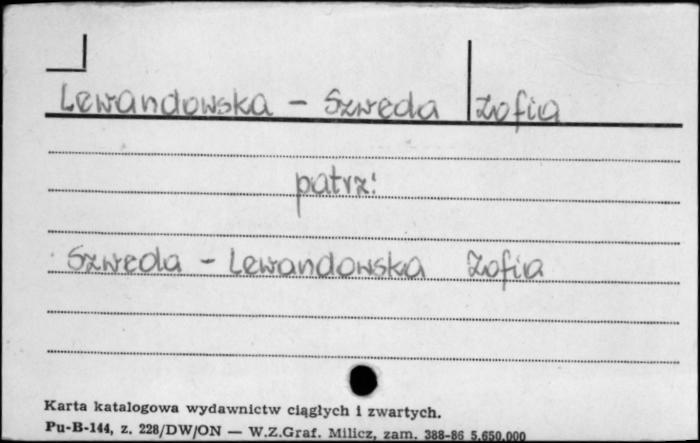 Lewandowska - Szweda Zofia
patrz:
Szweda - Lewandowska Zofia
Karta katalogowa wydawnictw ciągłych i zwartych.
Pu-B-144, z. 228/DW/ON — W.Z.Graf. Milicz, zam. 388-86 5.650.000